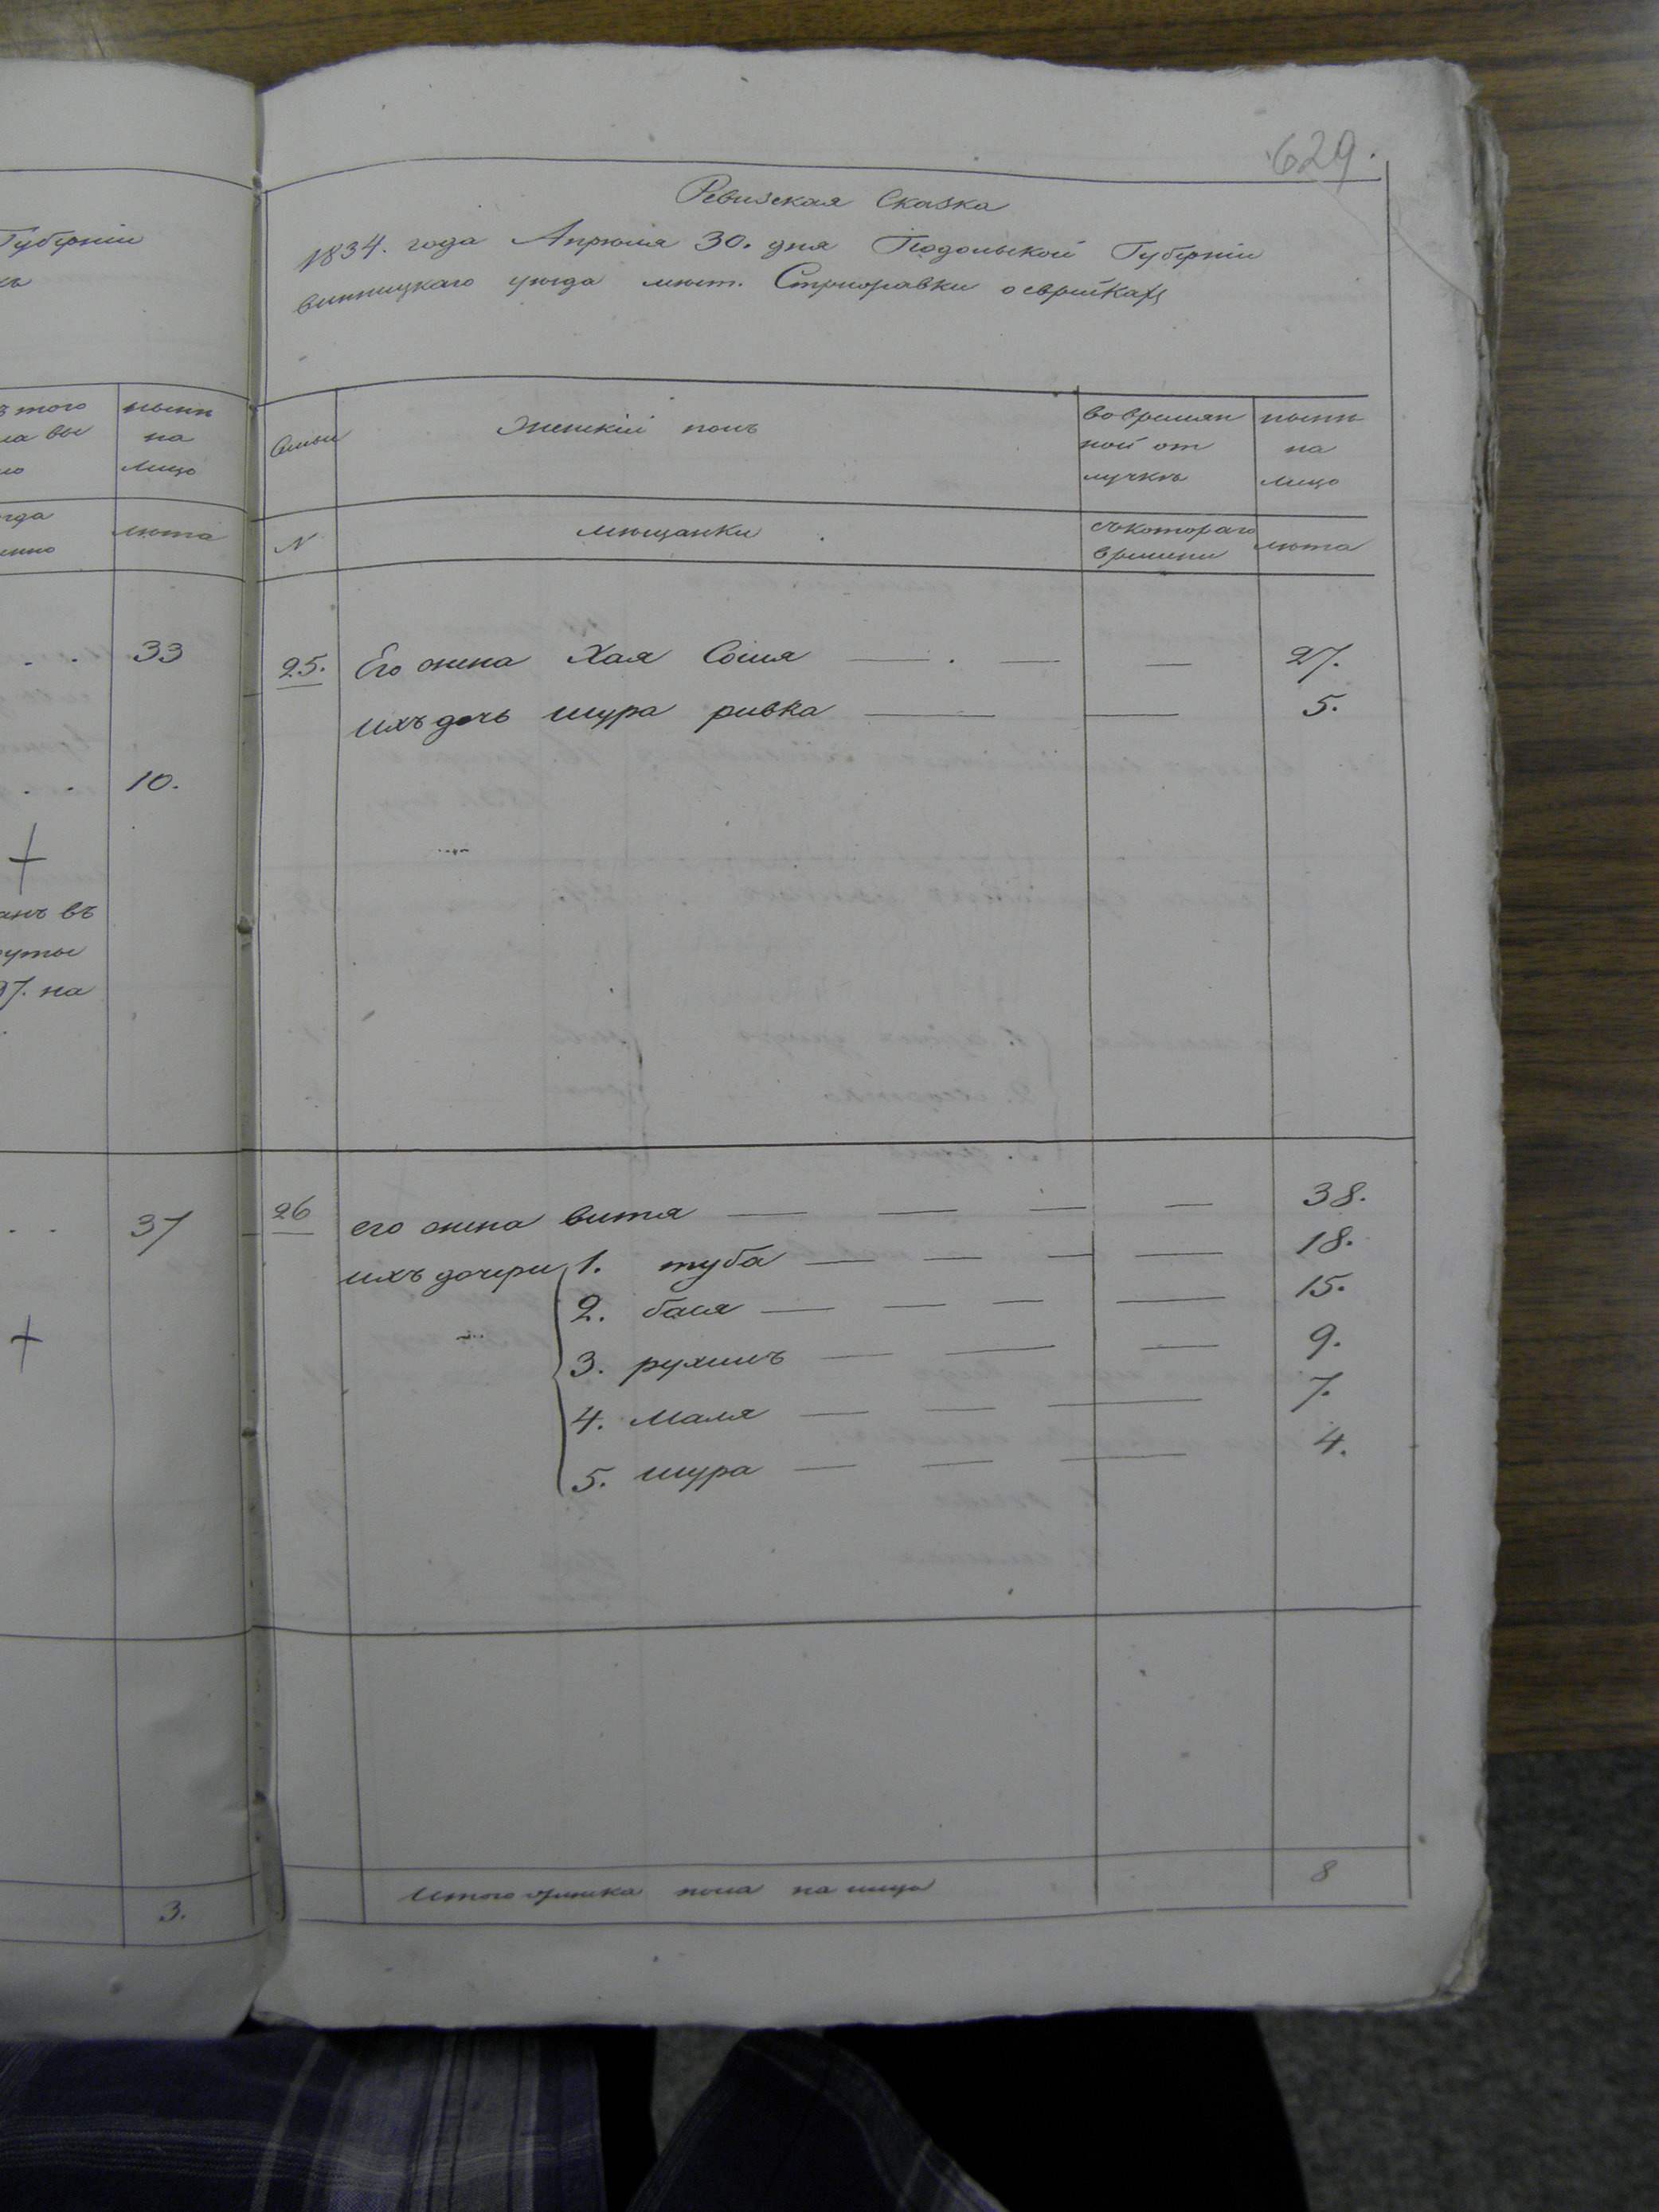 Губерніи
того
нынѣ
на
лицо
лѣта
33
10.
анъ въ
7. на
37
3.
629.
Ревизская Сказка
1834. года Апрѣля 30. дня Подольской Губерніи
винницкаго уѣзда мѣст. Стрижавки о еврейкахъ
Семьи
Женскій полъ
во времян
ной от
лучкѣ
нынѣ
на
лицо
N
мѣщанки
съ котораго
времени
лѣта
25. Его жена Хая Сося 27.
ихъ дочь шура ривка 5.
26 его жена витя 38.
ихъ дочери 1. туба 18.
2. бася 15.
3. рухиль 9.
4. Маля 7.
5. шура 4.
Итого женска пола на лицо 8